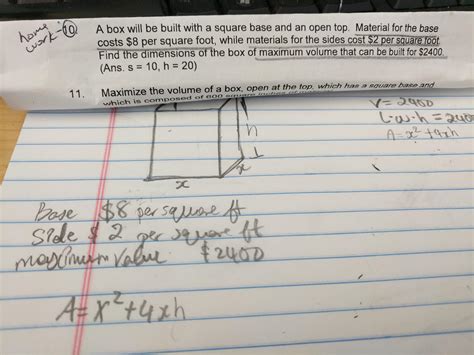 home work - 10 A box will be built with a square base and an open top. Material for the base
costs $8 per square foot, while materials for the sides cost $2 per square foot.
Find the dimensions of the box of maximum volume that can be built for $2400.
(Ans. s = 10, h = 20)
11. Maximize the volume of a box, open at the top, which has a square base and
which is composed of 600 square inches of
V = 2400
L·w·h = 2400
A = x² + 4xh
h
x
x
Base $8 per square ft
Side $ 2 per square ft
maximum value $2400
A = x² + 4xh